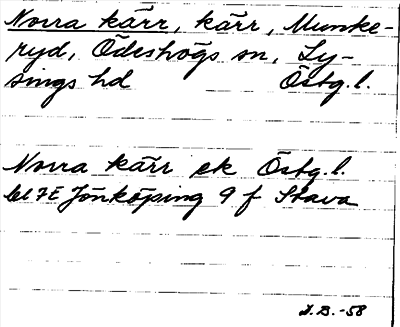 Norra kärr, kärr, Munke-
ryd, Ödeshögs sn, Ly-
sings hd Östg. l.
Norra kärr ek Östg. l.
bl 7E Jönköping 9 f Stava
I.B.-58